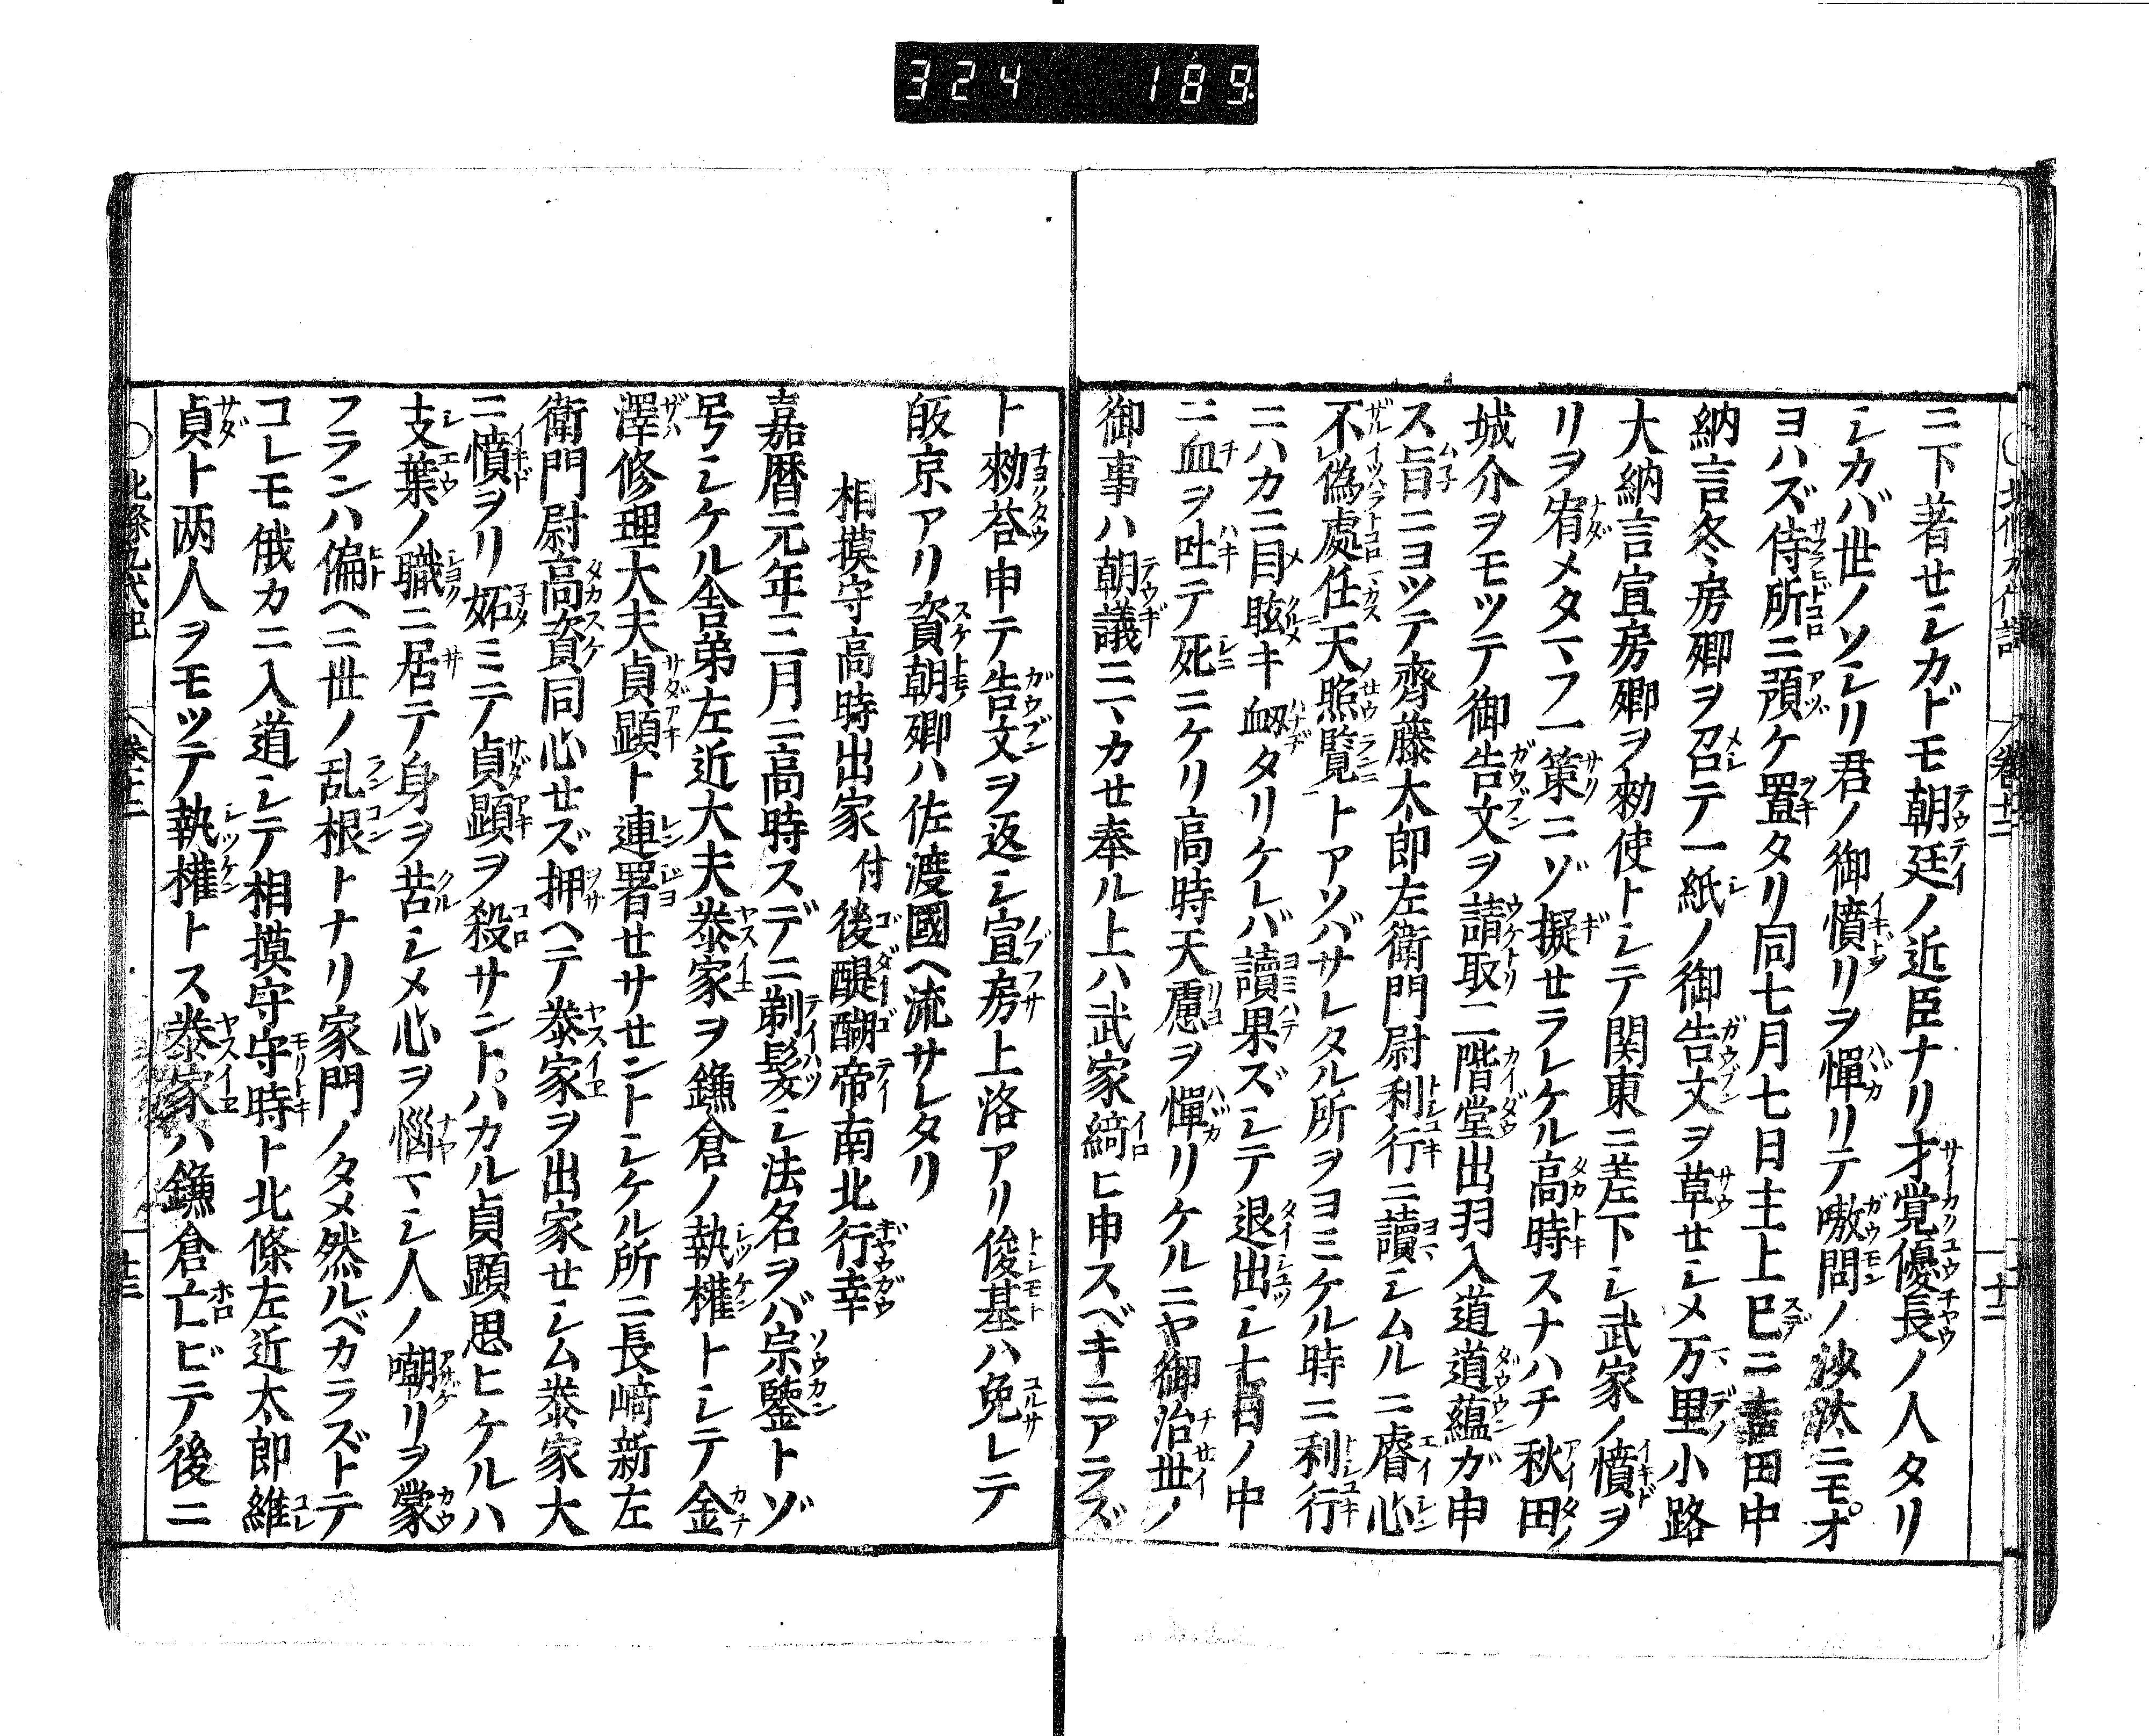 324 189.
ニ下著セシカドモ朝廷ノ近臣ナリ才覚優長ノ人タリ
シカバ世ノソシリ君ノ御憤リヲ憚リテ嗷問ノ沙汰ニモオ
ヨハズ侍所ニ預ケ置タリ同七月七日主上已ニ吉田中
納言冬房卿ヲ召テ一紙ノ御告文ヲ草セシメ万里小路
大納言宣房卿ヲ勅使トシテ関東ニ差下シ武家ノ憤ヲ
リヲ宥メタマフ一策ニゾ擬セラレケル高時スナハチ秋田
城介ヲモツテ御告文ヲ請取二階堂出羽入道道蘊ガ申
ス旨ニヨツテ齊藤太郎左衛門尉利行ニ讀シムルニ睿心
不偽處任天照覧トアソバサレタル所ヲヨミケル時ニ利行
ニハカニ目眩キ衂タリケレバ讀果ズシテ退出シ七日ノ中
ニ血ヲ吐テ死ニケリ高時天慮ヲ憚リケルニヤ御治世ノ
御事ハ朝議ニマカセ奉ル上ハ武家綺ヒ申スベキニアラズ
ト勅荅申テ告文ヲ返シ宣房上洛アリ俊基ハ免レテ
皈京アリ資朝卿ハ佐渡國ヘ流サレタリ
相摸守高時出家 付 後醍醐帝南北行幸
嘉暦元年三月ニ高時スデニ剃髪シ法名ヲバ宗鑒トゾ
号シケル舎弟左近大夫泰家ヲ鎌倉ノ執權トシテ金
澤修理大夫貞顕ト連署セサセントシケル所ニ長﨑新左
衛門尉高資同心セズ押ヘテ泰家ヲ出家セシム泰家大
ニ憤ヲリ妬ミテ貞顕ヲ殺サントハカル貞顕思ヒケルハ
支葉ノ職ニ居テ身ヲ苦シメ心ヲ悩マシ人ノ嘲リヲ蒙
フランハ偏ヘニ世ノ乱根トナリ家門ノタメ然ルベカラズトテ
コレモ俄カニ入道シテ相摸守守時ト北條左近太郎維
貞ト两人ヲモツテ執權トス泰家ハ鎌倉亡ビテ後ニ
北條九代記 巻十二